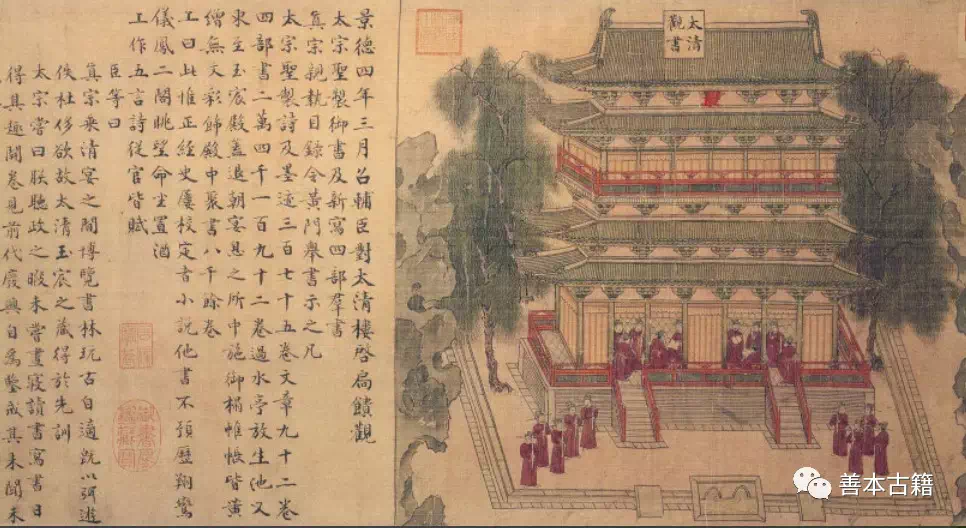 太清
觀書
景德四年三月召輔臣對太清樓啓扃饋觀
太宗聖製御書及新寫四部羣書
真宗親執目錄令黃門舉書示之凡
太宗聖製詩及墨迹三百七十五卷文章九十二卷
四部書二萬四千一百九十二卷過水亭放生池又
東至玉宸殿蓋退朝宴息之所中施御榻帷帳皆黃
繒無文彩歸殿中聚書八千餘卷
上曰此惟正經史屢校定書小說他書不預歷翔鸞
儀鳳二閣眺望命坐置酒
上作五言詩從官皆賦
臣等曰
真宗乘清宴之間博覽書林玩古自適既以弭遊
佚杜侈欲故太清玉宸之藏得於先訓
太宗嘗曰朕聽政之暇未嘗晝寢讀書寫書日
得其趣開卷見前代廢興自為鑒戒其未聞未
善本古籍